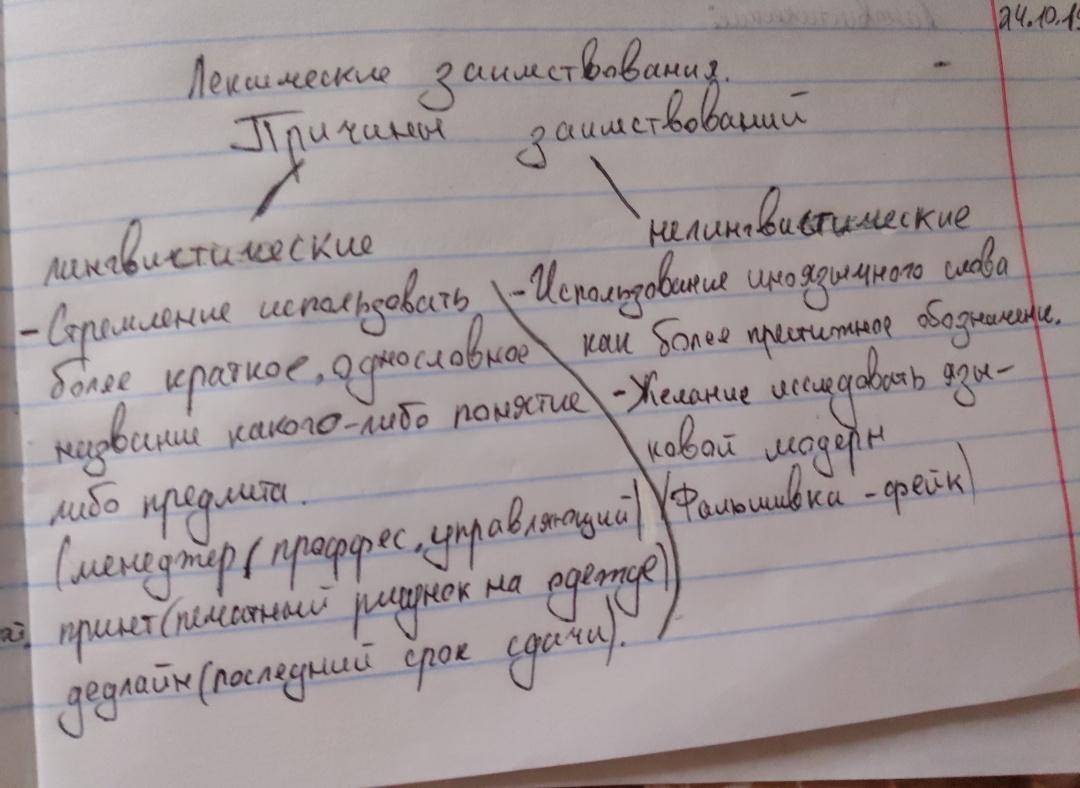 24.10.19
Лексические заимствования.
Причины заимствований
лингвистические
- Стремление использовать
более краткое, однословное
название какого-либо понятие
либо предмета.
(менеджер (проффес. управляющий)
принт (печатный рисунок на одежде)
дедлайн (последний срок сдачи).
нелингвистические
- Использование иноязычного слова
как более престижное обозначение.
- Желание исследовать язы-
ковой модерн
(Фальшивка - фейк)